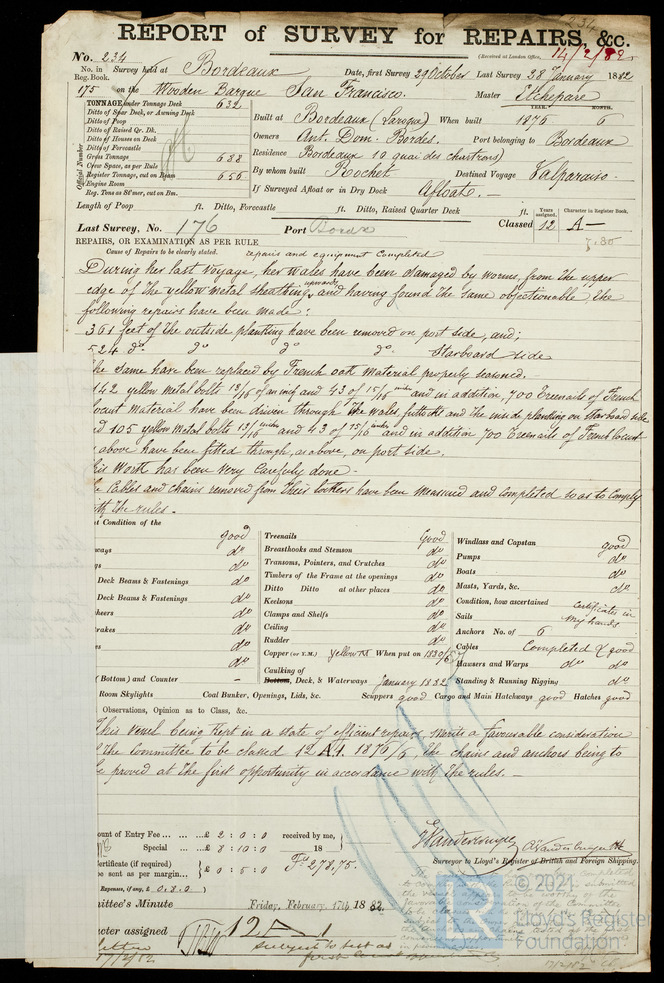 REPORT of SURVEY for REPAIRS, &c.
No. 234
(Received at London Office, 14/2/82
No. in Reg. Book. Survey held at Bordeaux Date, first Survey 29 October Last Survey 28 January 1882
175 on the Wooden Barque San Francisco. Master Etchepare
TONNAGE under Tonnage Deck 632
Ditto of Spar Deck, or Awning Deck
Ditto of Poop
Ditto of Raised Qr. Dk.
Ditto of Houses on Deck
Ditto of Forecastle
Gross Tonnage 688
Crew Space, as per Rule
Register Tonnage, cut on Beam 656
Engine Room
Reg. Tons as Stmer, cut on Bm.
Official Number
YEAR. MONTH.
Built at Bordeaux (Laroque) When built 1876 6
Owners Ant. Dom. Bordes. Port belonging to Bordeaux
Residence Bordeaux 19 quai des chartrons)
By whom built Rochet Destined Voyage Valparaiso.
If Surveyed Afloat or in Dry Dock Afloat.
Length of Poop ft. Ditto, Forecastle ft. Ditto, Raised Quarter Deck ft.
Last Survey, No. 176 Port Bordx
Years assigned. Character in Register Book.
Classed 12 A—
7.80
REPAIRS, OR EXAMINATION AS PER RULE
Cause of Repairs to be clearly stated. repairs and equipment Completed
During her last voyage, her wales have been damaged by worms, from the upper
edge of the yellow metal sheathing upwards, and having found the same objectionable the
following repairs have been made:
361 feet of the outside planking have been removed on port side, and;
524 do do do do Starboard side
he same have been replaced by French oak material properly seasoned.
142 yellow metal bolts 13/16 of an inch and 43 of 15/16 inches and in addition, 700 Treenails of French
locust material have been driven through the wales, futtocks and the inside planking on starboard side
d 105 yellow metal bolts 13/16 inches and 43 of 15/16 inches and in addition 700 Treenails of French locust
above have been fitted through, as above, on port side.
his Work has been very carefully done.
e Cables and chains removed from their lockers have been measured and completed so as to comply
ith the rules.
t Condition of the
good
ways do
gs do
Deck Beams & Fastenings do
Deck Beams & Fastenings do
heers do
rakes do
es do
do
(Bottom) and Counter –
Treenails Good
Breasthooks and Stemson do
Transoms, Pointers, and Crutches do
Timbers of the Frame at the openings do
Ditto Ditto at other places do
Keelsons do
Clamps and Shelfs do
Ceiling do
Rudder do
Copper (or Y.M.) Yellow M When put on
Caulking of Bottom, Deck, & Waterways January 1882
Windlass and Capstan good
Pumps do
Boats do
Masts, Yards, &c. do
Condition, how ascertained certificates in
Sails my hands
Anchors No. of 6
Cables Completed & good
Hausers and Warps do do
Standing & Running Rigging do
Room Skylights Coal Bunker, Openings, Lids, &c. Scuppers good Cargo and Main Hatchways good Hatches good
Observations, Opinion as to Class, &c.
This vessel being kept in a state of efficient repairs, merits a favourable consideration
the Committee to be classed 12 A1 1876/6, the chains and anchors being to
e proved at the first opportunity in accordance with the rules. –
ount of Entry Fee ... ... ... £ 2 : 0 : 0 received by me,
Special ... £ 8 : 10 : 0 18
ertificate (if required) £ 0 : 5 : 0 Fcs 278,75.
be sent as per margin...
Expenses, if any, £ 0.8.0
Surveyor to Lloyd's Register of British and Foreign Shipping.
mittee's Minute Friday, February 17th 1882.
acter assigned 12 A 1
subject to test at
17/2/82
© 2021
Lloyd's Register
Foundation